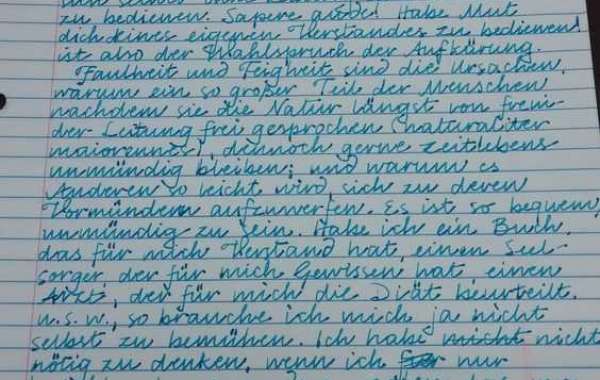 zu bedienen. Sapere aude! Habe Mut
dich deines eigenen Verstandes zu bedienen!
ist also der Wahlspruch der Aufklärung.
Faulheit und Feigheit sind die Ursachen,
warum ein so großer Teil der Menschen
nachdem sie die Natur längst von frem-
der Leitung frei gesprochen (naturaliter
maiorennes), dennoch gerne zeitlebens
unmündig bleiben; und warum es
Anderen so leicht wird, sich zu deren
Vormündern aufzuwerfen. Es ist so bequem,
unmündig zu sein. Habe ich ein Buch,
das für mich Verstand hat, einen Seel-
sorger, der für mich Gewissen hat einen
Arzt, der für mich die Diät beurteilt,
u.s.w., so brauche ich mich ja nicht
selbst zu bemühen. Ich habe nicht nicht
nötig zu denken, wenn ich nur